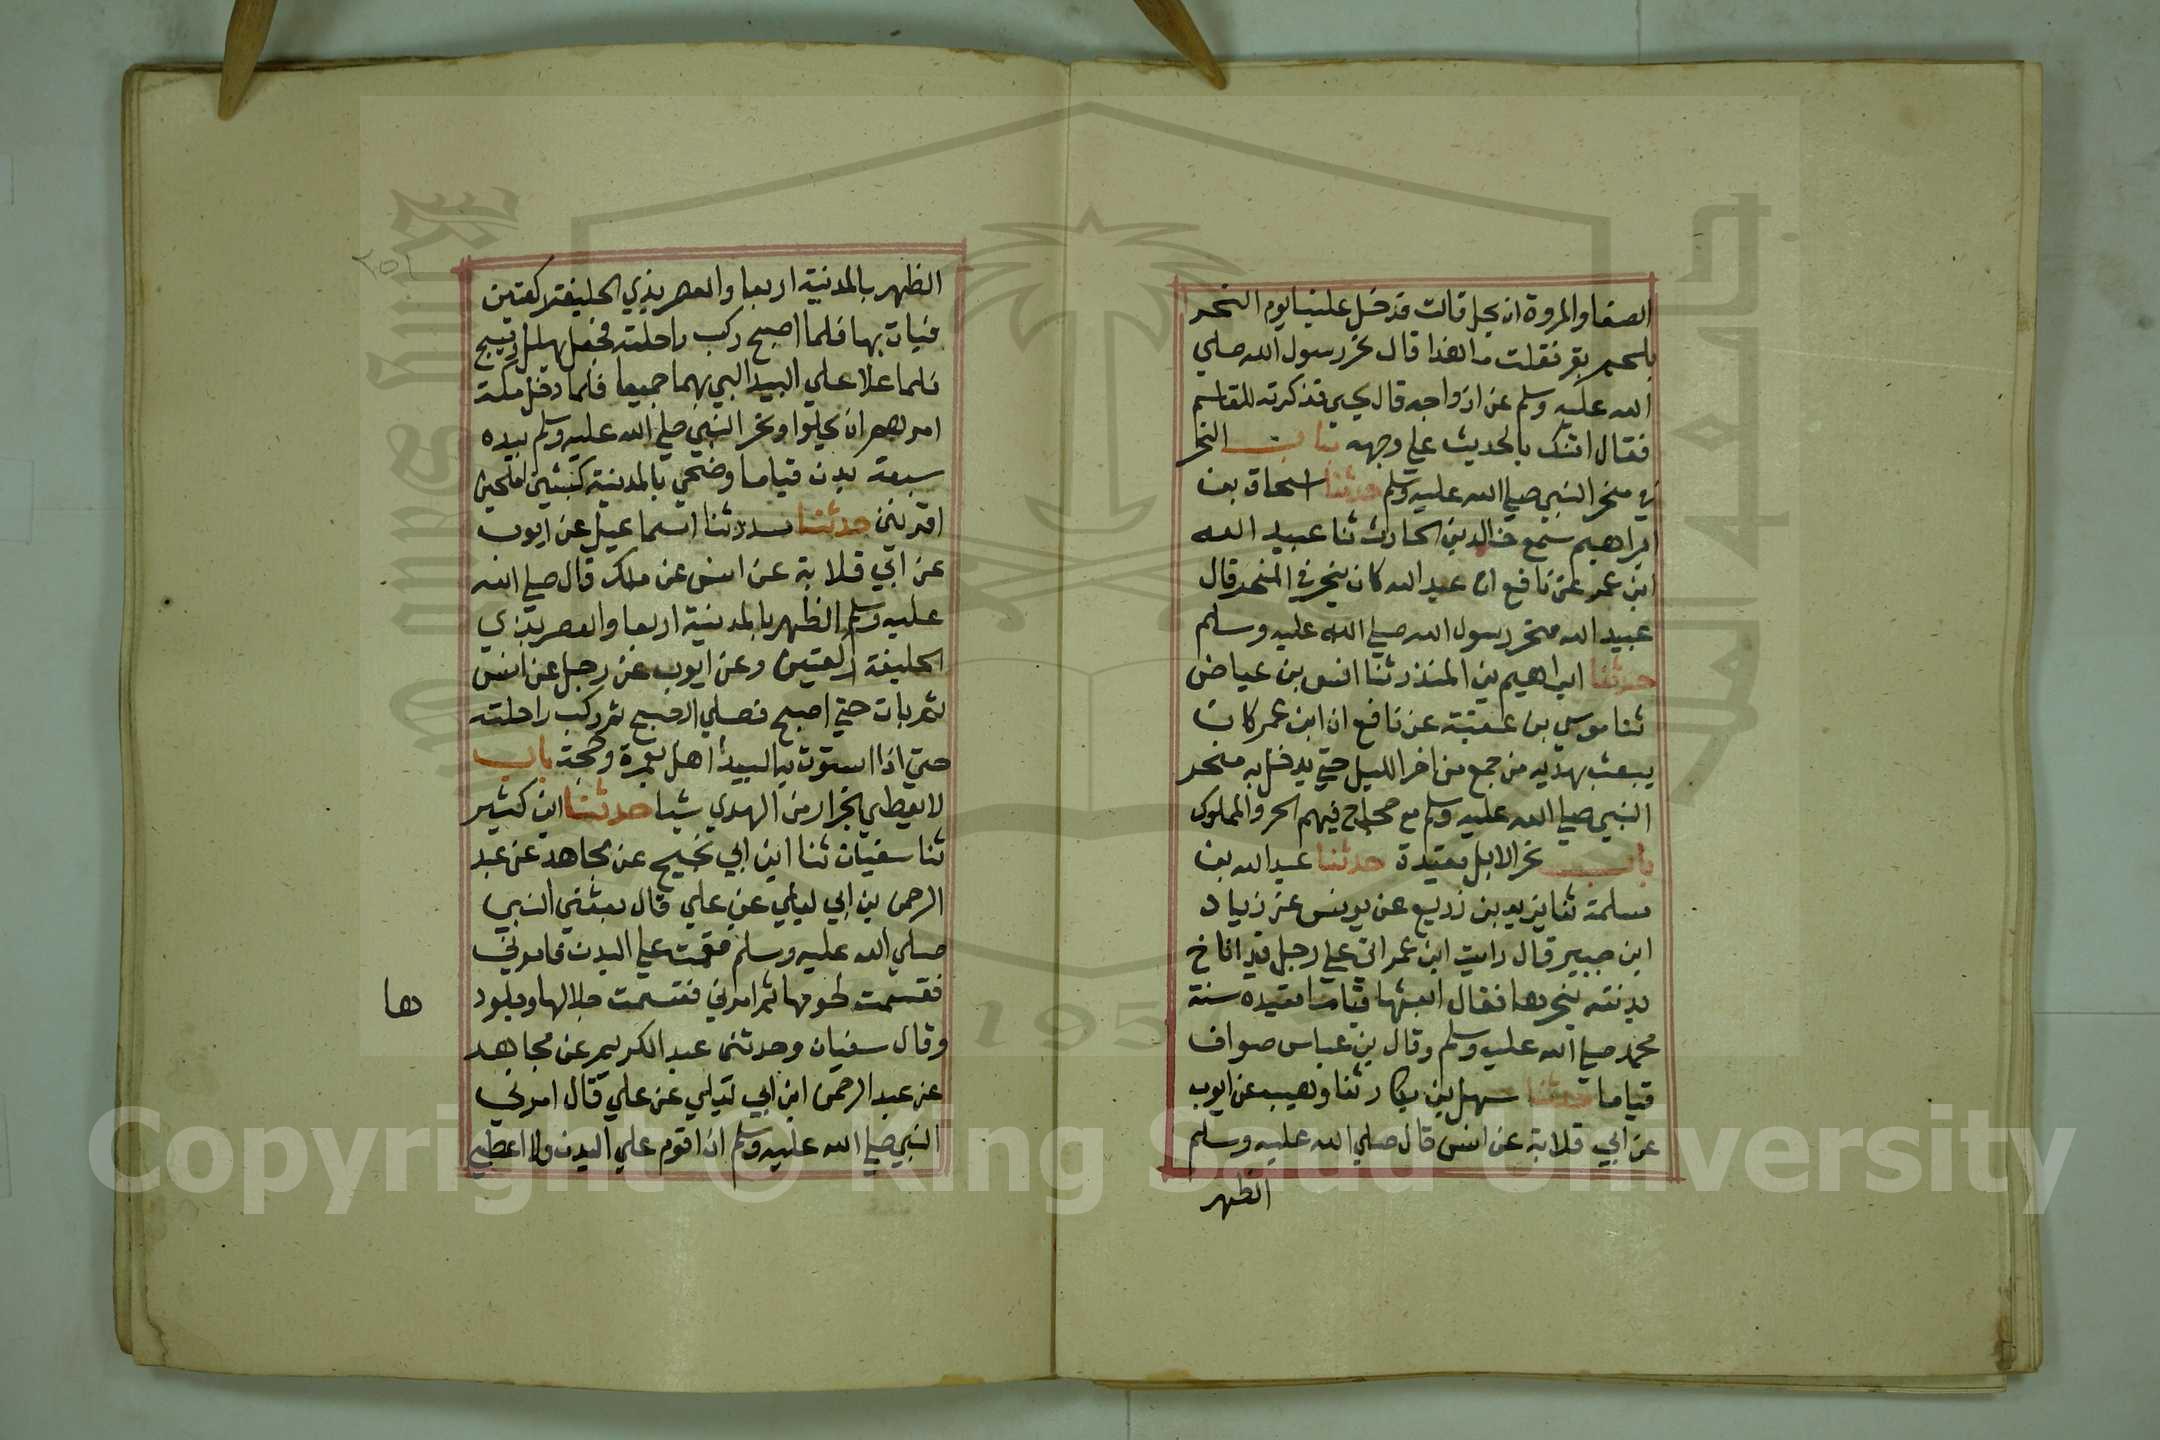 الصفا والمروة ان يحل قالت فدخل علينا يوم النحر
بلحم بقر فقلت ما هذا قال نحر رسول الله صلي
الله عليه وسلم عن ازواجه قال يحيى فذكرته للقاسم
فقال اتتك بالحديث علي وجهه باب النحر
في منحر النبي صلي الله عليه وسلم حدثنا اسحاق بن
ابراهيم سمع خالد بن الحارث ثنا عبيد الله
ابن عمر عن نافع ان عبد الله كان ينحر في المنحر قال
عبيد الله منحر رسول الله صلي الله عليه وسلم
حدثنا ابراهيم بن المنذر ثنا انس بن عياض
ثنا موسي بن عقبة عن نافع ان ابن عمر كان
يبعث بهديه من جمع من اخر الليل حتي يدخل به منحر
النبي صلي الله عليه وسلم مع حجاج فيهم الحر والمملوك
باب نحر الابل مقيدة حدثنا عبد الله بن
مسلمة ثنا يزيد بن زريع عن يونس عن زياد
ابن جبير قال رايت ابن عمر اتي علي رجل قد اناخ
بدنته ينحرها فقال ابعثها قياما مقيده سنة
محمد صلي الله عليه وسلم وقال بن عباس صواف
قياما حدثنا سهل بن بكار ثنا وهيب عن ايوب
عن ابي قلابة عن انس قال صلي الله عليه وسلم
الظهر
٢٥٢
الظهر بالمدنية اربعا والعصر بذي الحليفة ركعتين
فبات بها فلما اصبح ركب راحلته فجعل يهلل ويسبح
فلما علا علي البيدا لبي بهما جميعا فلما دخل مكة
امرهم ان يحلوا ونحر النبي صلي الله عليه وسلم بيده
سبعة بدن قياما وضحي بالمدنية كبشين املحين
اقرنين حدثنا مسدد ثنا اسماعيل عن ايوب
عن ابي قلابة عن انس عن ملك قال صلي الله
عليه وسلم الظهر بالمدنية اربعا والعصر بذي
الحليفة ركعتين وعن ايوب عن رجل عن انس
ثم بات حتي اصبح فصلي الصبح ثم ركب راحلته
حتي اذا استوت به البيدا اهل بعمرة وحجة باب
لا يعطي الجزار من الهدي شيا حدثنا ابن كثير
ثنا سفيان ثنا ابن ابي نجيح عن مجاهد عن عبد
الرحمن بن ابي ليلي عن علي قال بعثني النبي
صلي الله عليه وسلم فقمت علي البدن فامرني
فقسمت لحومها ثم امرني فقسمت جلالها وجلود
ها
وقال سفيان وحدثني عبد الكريم عن مجاهد
عن عبد الرحمن ابن ابي ليلي عن علي قال امرني
النبي صلي الله عليه وسلم ان اقوم علي البدن ولا اعطي
Copyright © King Saud University
1957